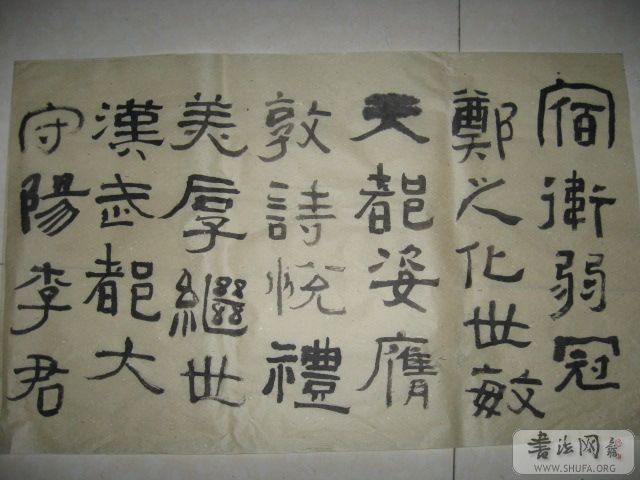 宿衛弱冠
鄭之化世敏
天都姿膺
敦詩悅禮
美厚繼世
漢武都大
守陽李君
書法网
WWW.SHUFA.ORG